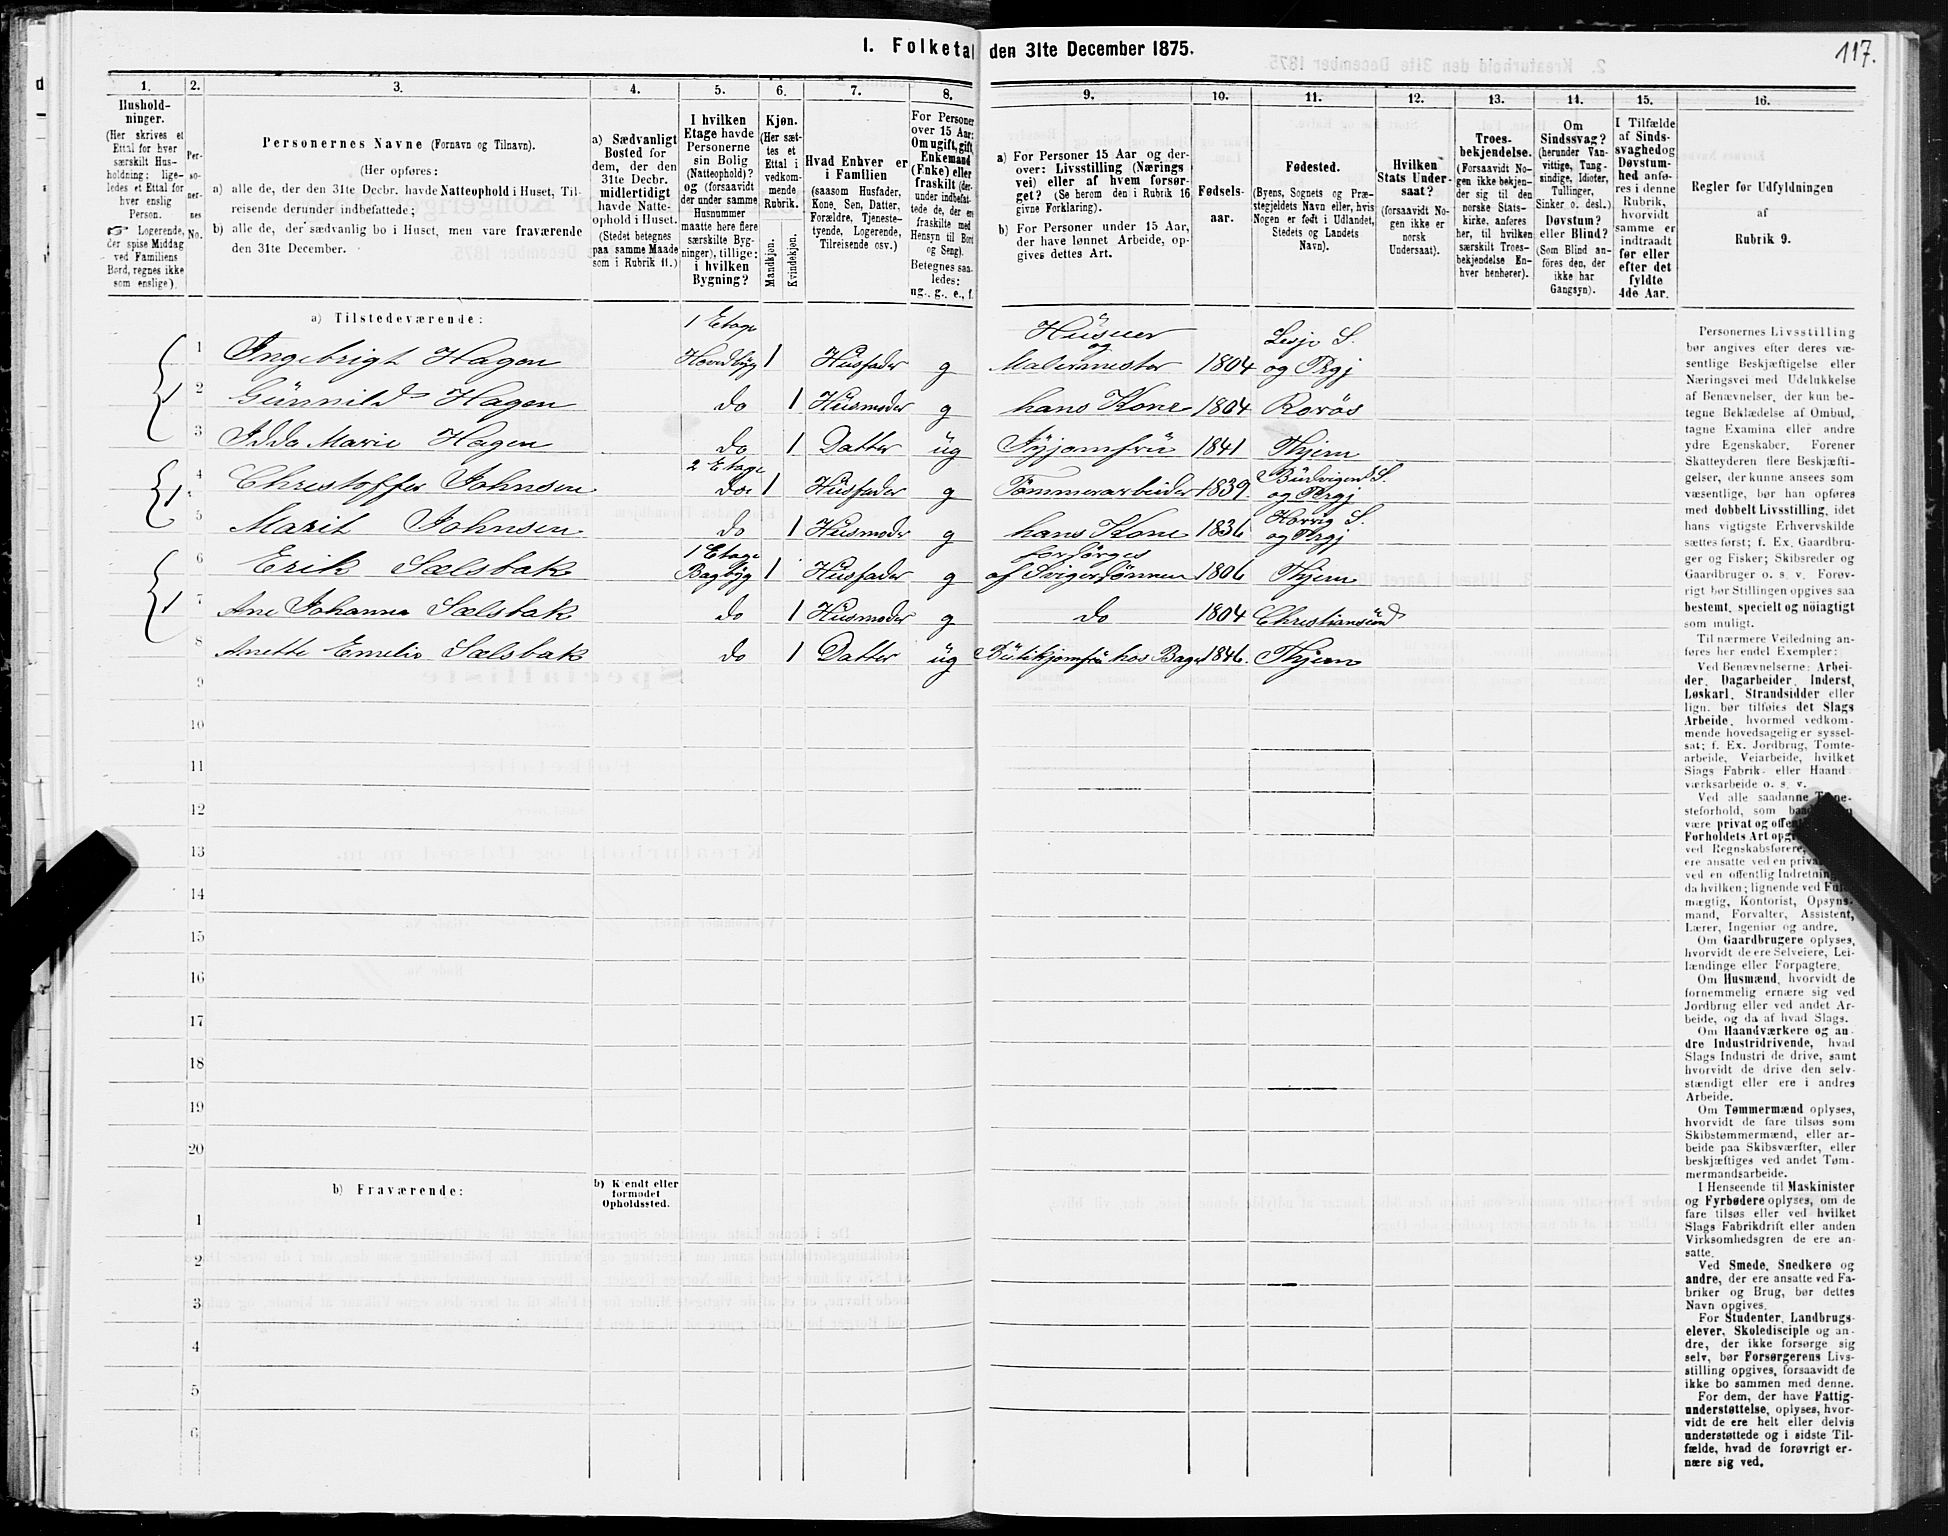 1. Folketal den 31te December 1875.
117.
1.
Hushold-
ninger.
(Her skrives et
Ettal for hver
særskilt Hus-
holdning; lige-
ledes et Ettal for
hver enslig
Person.
☞ Logerende,
der spise Middag
ved Familiens
Bord, regnes ikke
som enslige).
2.
Per-
so-
ner-
nes
No.
3.
Personernes Navne (Fornavn og Tilnavn).
(Her opføres:
a) alle de, der den 31te Decbr. havde Natteophold i Huset, Til-
reisende derunder indbefattede;
b) alle de, der sædvanlig bo i Huset, men vare fraværende
den 31te December.
4.
a) Sædvanligt
Bosted for
dem, der den
31te Decbr.
midlertidigt
havde Natte-
ophold i Huset.
(Stedet betegnes
paa samme Maade
som i Rubrik 11.)
5.
I hvilken
Etage havde
Personerne
sin Bolig
(Natteophold)?
og (forsaavidt
der under samme
Husnummer
maatte høre flere
særskilte Byg-
ninger), tillige:
i hvilken
Bygning?
6.
Kjøn.
(Her sæt-
tes et
Ettal i
vedkom-
mende
Rubrik.
Mandkjøn.
Kvindekjøn.
7.
Hvad Enhver er
i Familien
(saasom Husfader,
Kone, Søn, Datter,
Forældre, Tjeneste-
tyende, Logerende,
Tilreisende osv.)
8.
For Personer
over 15 Aar:
Om ugift, gift,
Enkemand
(Enke) eller
fraskilt (der-
under indbefat-
tede de, der ere
fraskilte med
Hensyn til Bord
og Seng).
Betegnes saa-
ledes:
ug., g., e., f.
9.
a) For Personer 15 Aar og der-
over: Livsstilling (Nærings
vei) eller af hvem forsør-
get? (Se herom den i Rubrik 16
givne Forklaring).
b) For Personer under 15 Aar,
der have lønnet Arbeide, op-
gives dettes Art.
10.
Fødsels-
aar.
11.
Fødested.
(Byens, Sognets og Præ-
stegjeldets Navn eller, hvis
Nogen er født i Udlandet,
Stedets og Landets
Navn).
12.
Hvilken
Stats Under-
saat?
(forsaavidt No-
gen ikke er
norsk
Undersaat).
13.
Troes-
bekjendelse.
(Forsaavidt No-
gen ikke bekjen-
der sig til den
norske Stats-
kirke, anføres
her, til hvilken
særskilt Troes-
bekjendelse En-
hver henhører).
14.
Om
Sindssvag?
(herunder Van-
vittige, Tung-
sindige, Idioter,
Tullinger,
Sinker o. desl.)
Døvstum?
eller Blind?
(Som Blind an-
føres den, der
ikke har
Gangsyn).
15.
I Tilfælde
af Sinds-
svaghed og
Døvstum-
hed anfø-
res i denne
Rubrik,
hvorvidt
samme er
indtraadt
før eller
efter det
fyldte
4de Aar.
16.
Regler for Udfyldningen
af
Rubrik 9.
a) Tilstedeværende:
1 Ingebrigt Hagen 1 Etage Hovedbÿg 1 Husfader g Hüseier og Malermester 1804 Lesje S. og Prgj
2 Günnild Hagen do 1 Husmoder g hans Kone 1804 Rorøs
3 Idda Marie Hagen do 1 Datter üg Syjomfrü 1841 Thjem
4 Christoffer Johnsen 2 Etage do 1 Husfader g Tømmerarbeider 1839. Büdvigen S. og Prgj
5 Marit Johnsen do 1 Husmoder g hans Kone 1836 Horrig S. og Prgj
6 Erik Sælsbak 1 Etage Bagbÿg 1 Husfader g forsørges af Svigersønnen 1806 Thjem
7 Ane Johanna Sælsbak do 1 Husmoder g do 1804 Christiansünd
8 Anette Emelie Sælsbak do 1 Datter üg Bütikjomfrü hos Bager 1846. Thjem
9
10
11
12
13
14
15
16
17
18
19
20
b) Fraværende:
b) Kjendt eller
formodet
Opholdssted.
1
2
3
4
5
6
Personernes Livsstilling
bør angives efter deres væ-
sentlige Beskjæftigelse eller
Næringsvei med Udelukkelse
af Benævnelser, der kun be-
tegne Beklædelse af Ombud,
tagne Examina eller andre
ydre Egenskaber. Forener
Skatteyderen flere Beskjæfti-
gelser, der kunne ansees som
væsentlige, bør han opføres
med dobbelt Livsstilling, idet
hans vigtigste Erhvervskilde
sættes først; f. Ex. Gaardbru-
ger og Fisker; Skibsreder og
Gaardbruger o. s. v. Forøv-
rigt bør Stillingen opgives saa
bestemt, specielt og nöiagtigt
som muligt.
Til nærmere Veiledning an-
føres her endel Exempler:
Ved Benævnelserne: Arbei-
der, Dagarbeider, Inderst,
Løskarl, Strandsidder eller
lign. bør tilføies det Slags
Arbeide, hvormed vedkom-
mende hovedsagelig er syssel-
sat; f. Ex. Jordbrug, Tomte-
arbeide, Veiarbeide, hvilket
Slags Fabrik- eller Haand-
værksarbeide o. s. v.
Ved alle saadanne Tjene-
steforhold, som baade
være privat og
Forholdets Art
ved Regnskabsførere,
ere ansatte ved en
ved en offentlig Indretning
da hvilken; lignende ved
mægtig, Kontorist, Opsyns-
mand, Forvalter, Assistent,
Lærer, Ingeniør og andre.
Om Gaardbrugere oplyses,
hvorvidt de ere Selveiere, Lei-
lændinge eller Forpagtere.
Om Husmænd, hvorvidt de
fornemmelig ernære sig ved
Jordbrug eller ved andet Ar-
beide, og da af hvad Slags.
Om Haandværkere og an-
dre Industridrivende, hvad
Slags Industri de drive, samt
hvorvidt de drive den selv-
stændigt eller ere i andres
Arbeide.
Om Tømmermænd oplyses,
hvorvidt de fare tilsøs som
Skibstømmermænd, eller ar-
beide paa Skibsværfter, eller
beskjæftiges ved andet Tøm-
mermandsarbeide.
I Henseende til Maskinister
og Fyrbødere oplyses, om de
fare tilsøs eller ved hvilket
Slags Fabrikdrift eller anden
Virksomhedsgren de ere an-
satte.
Ved Smede, Snedkere og
andre, der ere ansatte ved Fa-
briker og Brug, bør dettes
Navn opgives.
For Studenter, Landbrugs-
elever, Skoledisciple og an-
dre, der ikke forsørge sig
selv, bør Forsørgerens Livs-
stilling opgives, forsaavidt de
ikke bo sammen med denne.
For dem, der have Fattig-
understøttelse, oplyses, hvor-
vidt de ere helt eller delvis
understøttede og i sidste Til-
fælde, hvad de forøvrigt er-
nære sig ved.